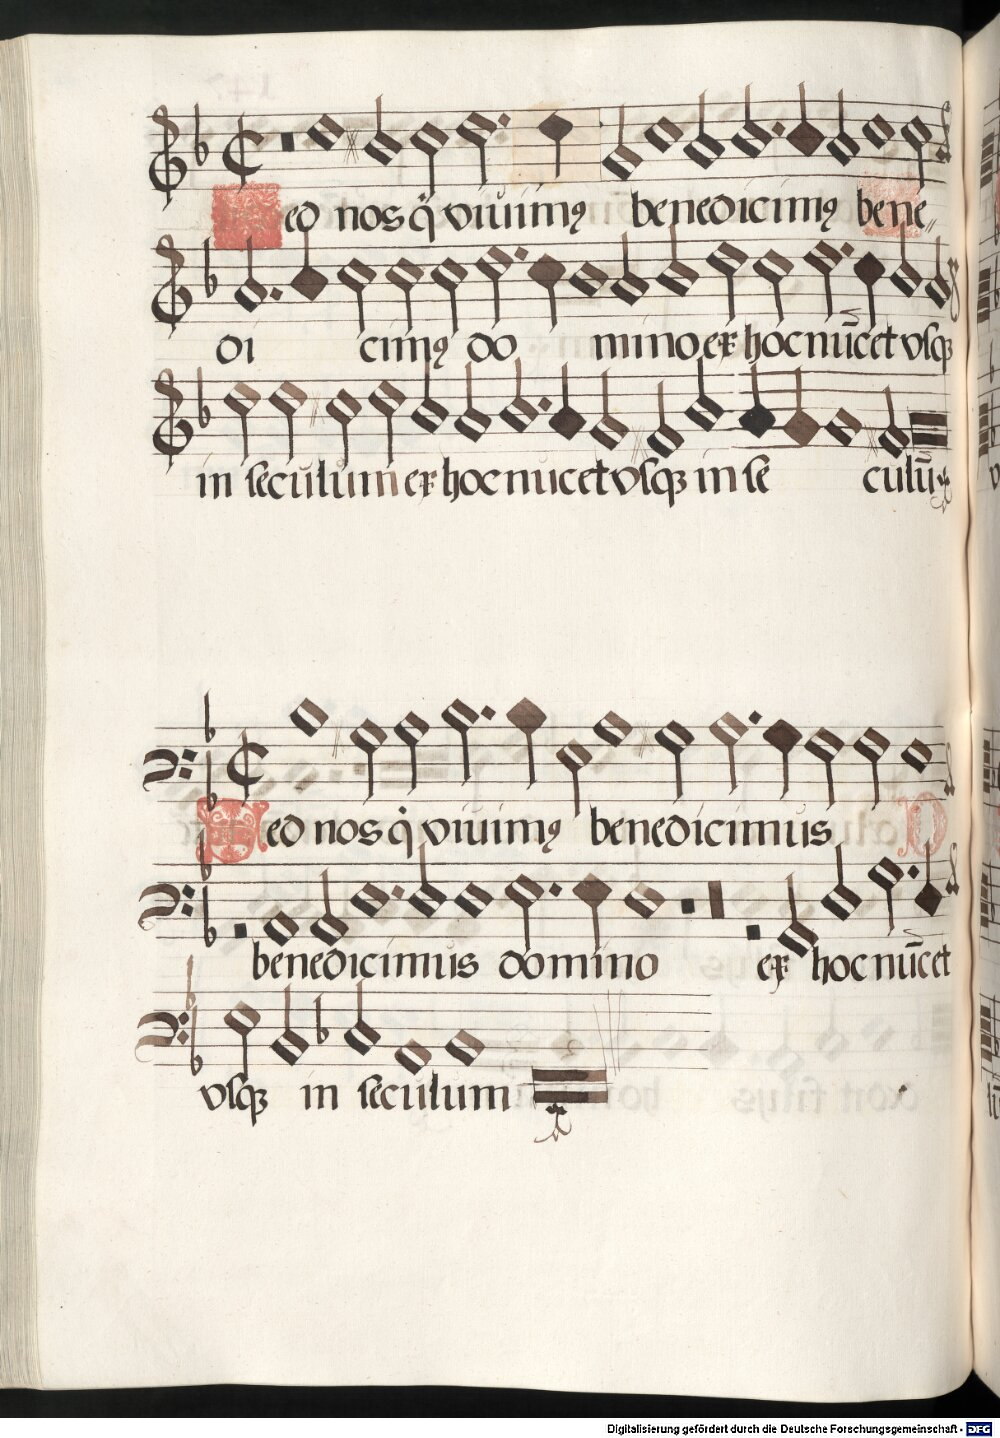 Sed nos q̃ viuimꝰ benedicimꝰ bene-
di cimꝰ do mino ex hoc nũc et vsqꝫ
in seculum ex hoc nuc et vsqꝫ in se culũ
Sed nos q̃ viuimꝰ benedicimus
benedicimus domino ex hoc nũc et
vsqꝫ in seculum
Digitalisierung gefördert durch die Deutsche Forschungsgemeinschaft - DFG